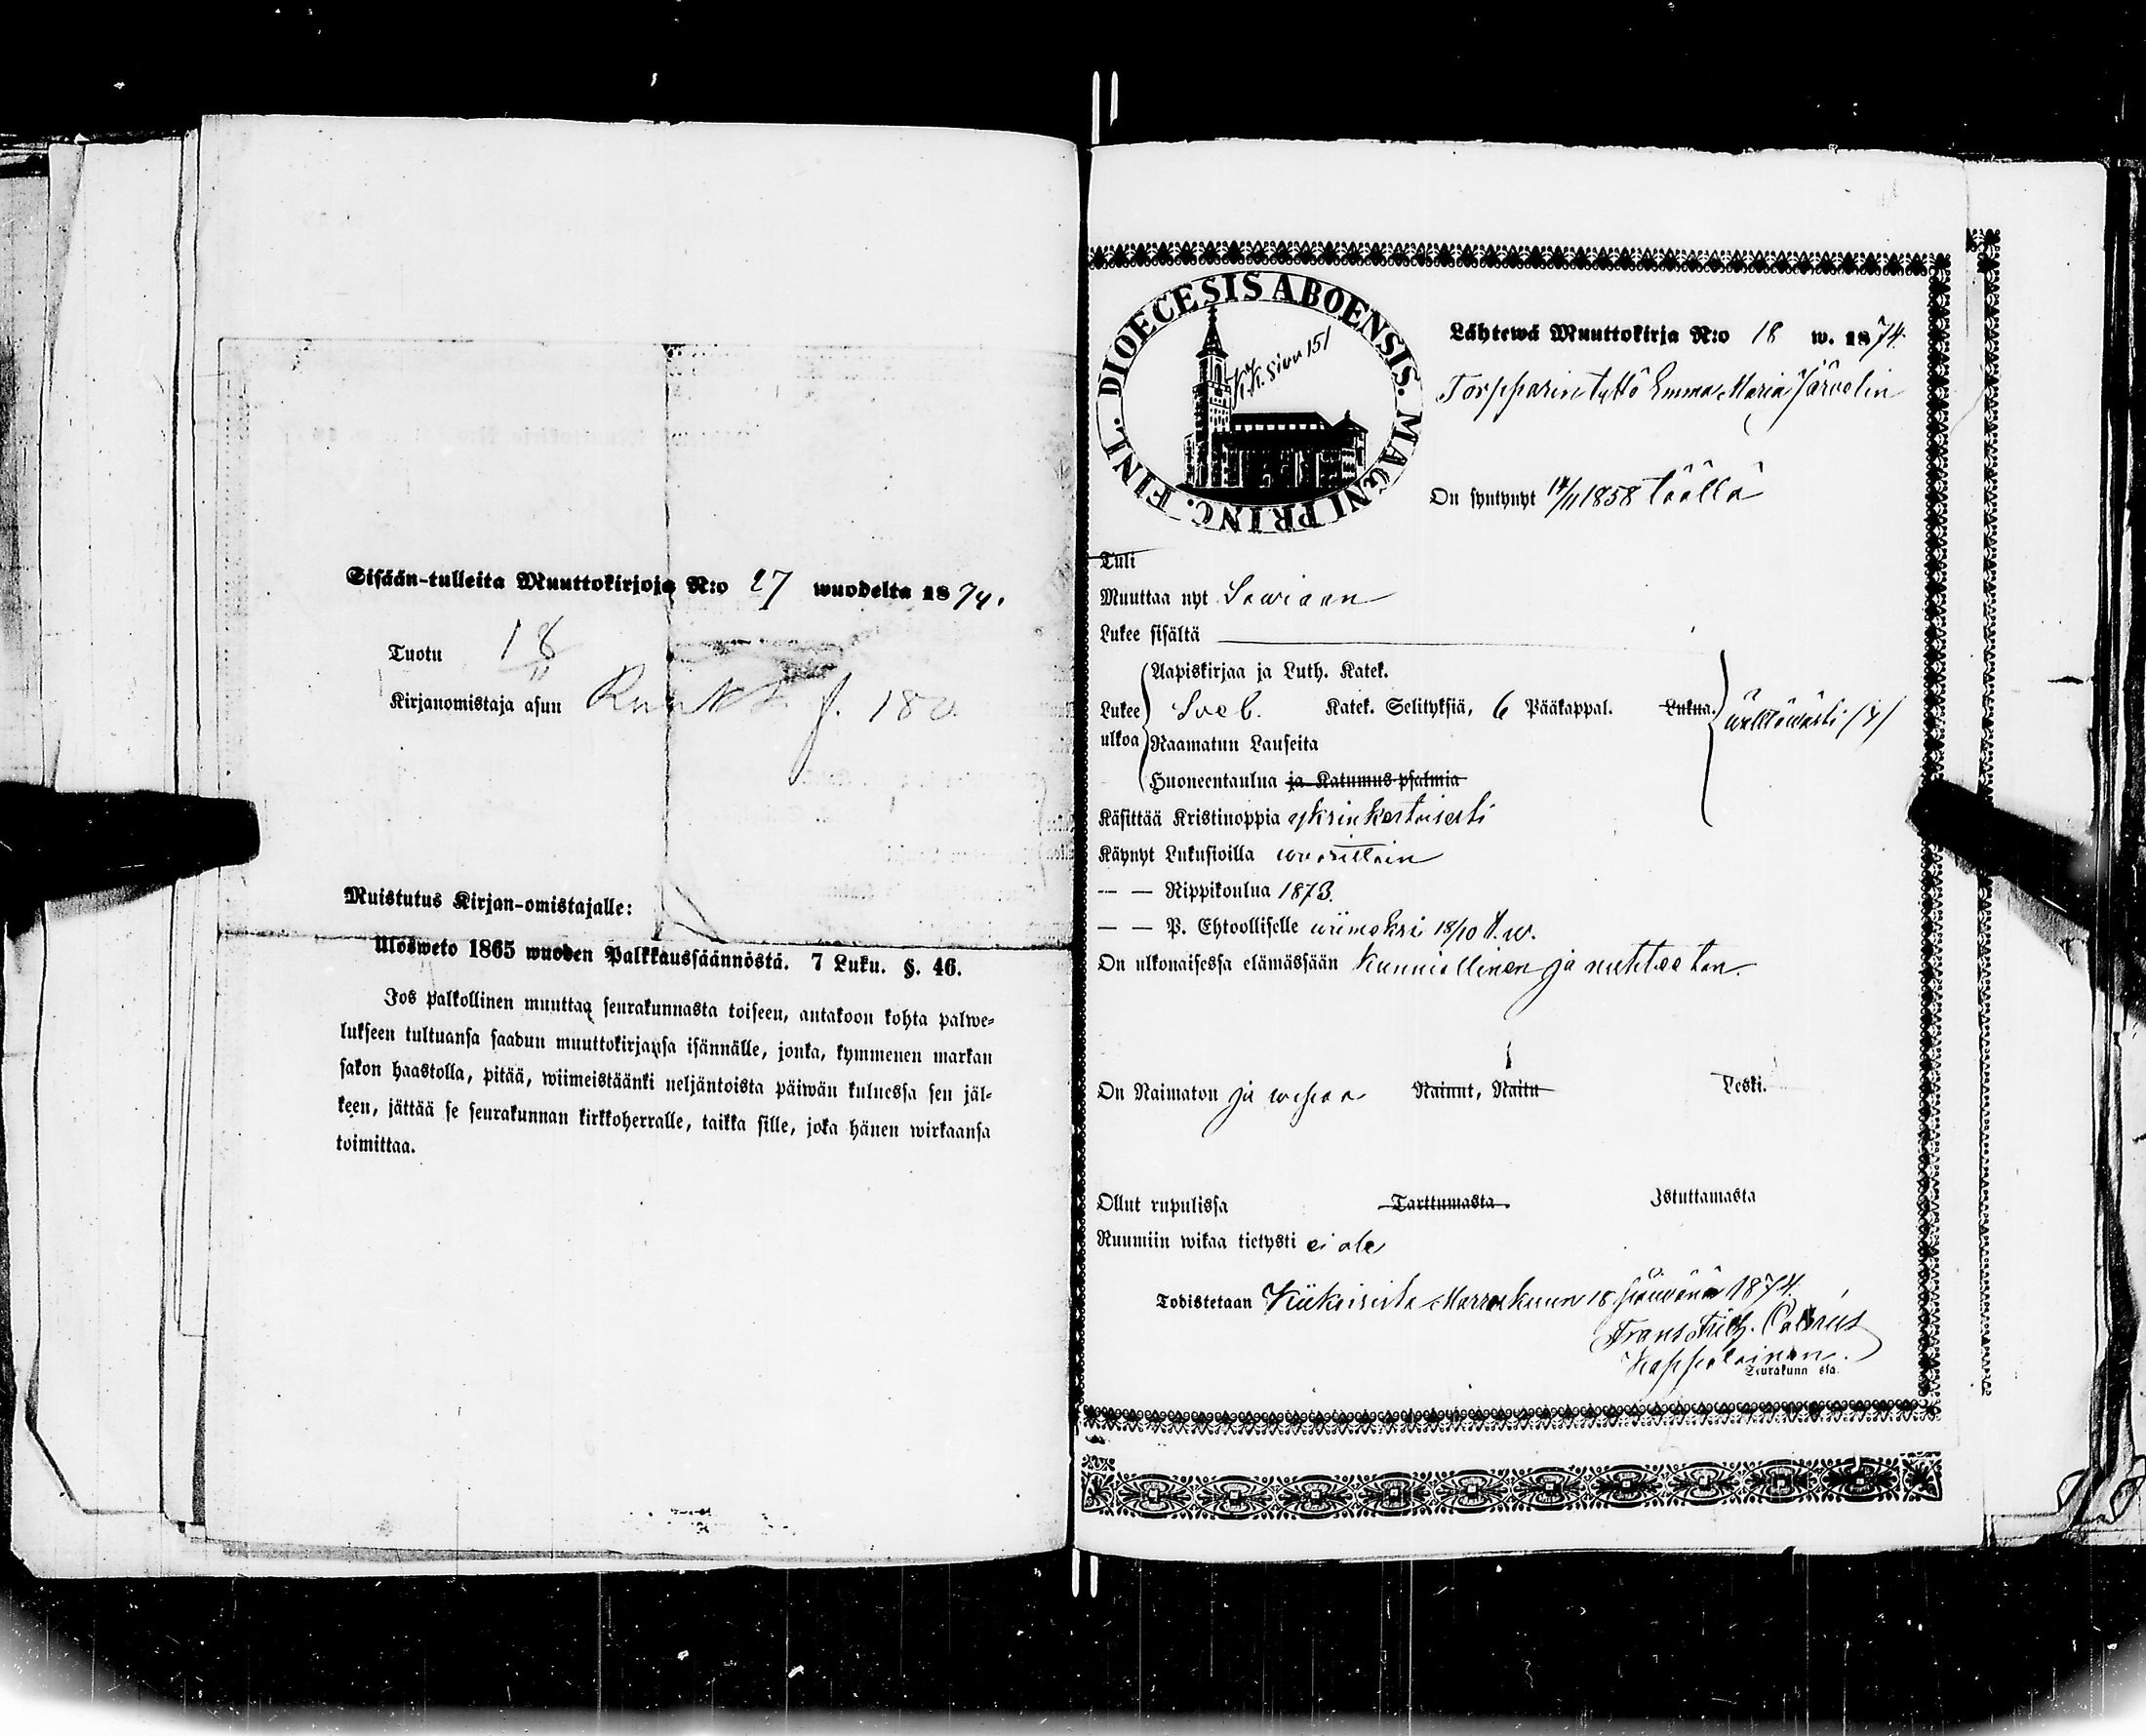 Sisään-tulleita Muuttokirjoja N:o 27 wuodelta 1874.
Tuotu 18/11
Kirjanomistaja asuu f. 180.
Muistutus Kirjan-omistajalle:
Ulosweto 1865 wuoden Palkkaussäännöstä. 7 Luku. §. 46.
Jos palkollinen muuttaa seurakunnasta toiseen, antakoon kohta palwe-
lukseen tultuansa saadun muuttokirjansa isännälle, jonka, kymmenen markan
sakon haastolla, pitää, wiimeistäänki neljäntoista päiwän kuluessa sen jäl-
keen, jättää se seurakunnan kirkkoherralle, taikka sille, joka hänen wirkaansa
toimittaa.
DIOECESIS ABOENSIS. MAGNI PRINC. FINL.
K.K. sivu 151
Lähtewä Muuttokirja N:o 18 w. 1874.
Torpparin tyttö Emma Maria Järvelin
On syntynyt 14/11 1858 täällä
Tuli
Muuttaa nyt Sawiaan
Lukee sisältä
Aapiskirjaa ja Luth. Katek.
Lukee ulkoa Sveb. Katek. Selityksiä, 6 Pääkappal. Lukua. wälttäwästi
Raamatun Lauseita
Huoneentaulua ja Katumus-psalmia
Käsittää Kristinoppia yksinkertaisesti
Käynyt Lukusioilla wuosittain
— — Rippikoulua 1873.
— — P. Ehtoolliselle wiimeksi 18/10 t.w.
On ulkonaisessa elämässään kunniallinen ja nuhteeton.
On Naimaton ja wapaa Nainut, Naitu Leski.
Ollut rupulissa Tarttumasta. Istuttamasta
Ruumiin wikaa tietysti ei ole
Todistetaan Kiikoisista Marraskuun 18 päivänä 1874.
Frans
Kappalainen.
Seurakunn ssa.